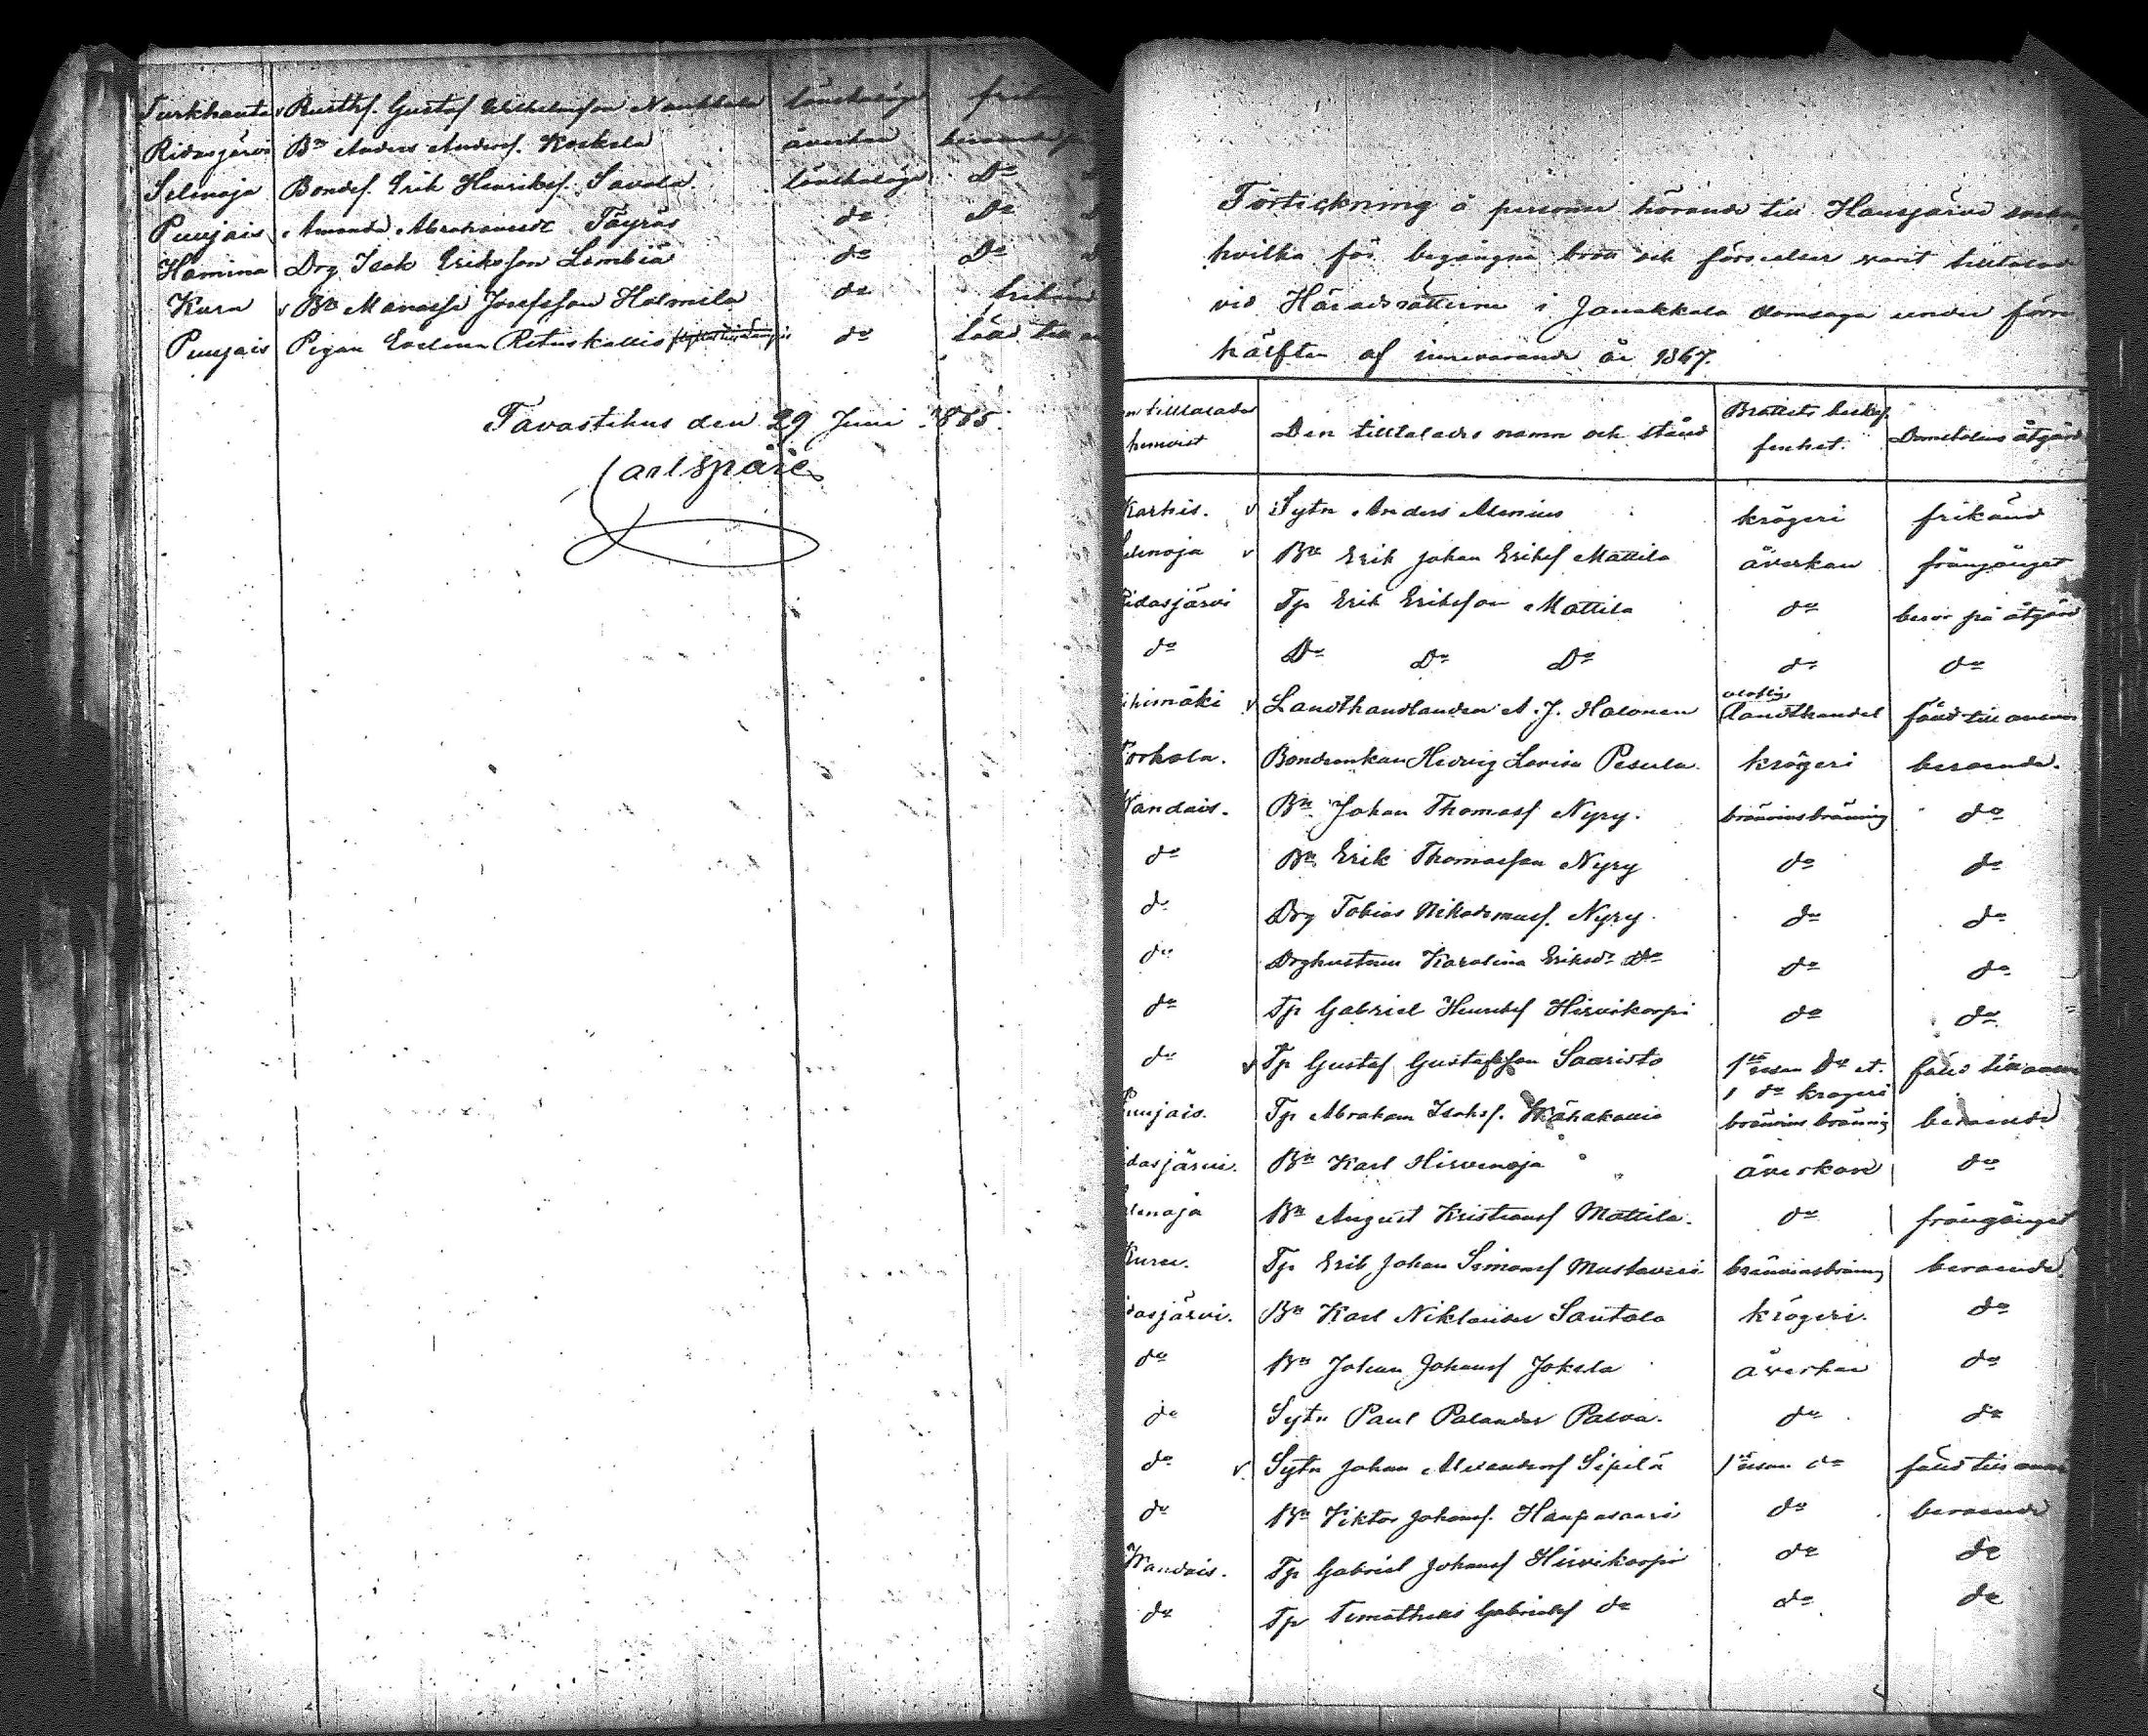 Turkhauta v Rusthf. Gustaf Wilhelmsson Naukkala lönskaläge frik
Ridasjärvi Bn Anders Andersf. Koskela åverkan beroende
Selinoja Bondes. Erik Henriksf. Savola. lönskaläge Do
Puujais Amanda Abrahamsdr Täyräs do Do
Hamina Drg Isak Eriksson Lembiä do Do
Kuru v Bn Manasse Josefsson Holmela do frikänd
Puujais Pigan Evelina Rituskallio do fäld till
Tavastehus den 29 Juni 1865.
Carl Spåre
Förtickning å personer hörande till Hausjärvi socken,
hvilka för begångna brott och förseelser varit tilltalade
vid Häradsrätterne i Janakkala domsaga under förra
hälften af innevarande år 1867.
n tilltalades hemvist Den tilltalades namn och stånd Brottets beskaf- fenhet. Domstolens åtgärd
Karhis. v Sytn Anders Alenius krögeri frikänd
Selenoja v Bn Erik Johan Eriksf Mattila åverkan frångånget
Ridasjärvi Tp Erik Eriksson Mattila do beror på åtgärd
do Do Do Do do do
ihimäki v Landthandlanden A. J. Halonen olaflig landthandel fäld till ansvar
Torhola. Bondeenkan Hedvig Lovisa Pesula. krögeri beroende.
Wandais. Bn Johan Thomasf Nyry. bränvinsbränning do
do Bn Erik Thomasson Nyry do do
do Drg Tobias Nikodemusf. Nyry. do do
do Drghustrun Karolina Eriksdr Do do do
do Tp Gabriel Henriksf Hirvikorpi do do
do v Tp Gustaf Gustafsson Saaristo 1sta resan do et. 1 do krögeri fäld till ansvar
Puujais. Tp Abraham Isaksf. Kähäkallio bränvins bränning beroende
dasjärvi. Bn Karl Hirvenoja åverkan do
lenoja Bn August Kristiansf Mattila. do frångånget
Kuru. Tp Erik Johan Simonsf Mustaviri bränvinsbränning beroende.
dasjärvi. Bn Karl Niklander Santala krögeri. do
do Bn Johan Johansf Jokela åverkan do
do Sytn Paul Palander Palva. do do
do v. Sytn Johan Alexandersf Sipilä 1sta resan do fäld till ansvar
do Bn Viktor Johansf. Haapasaari do beroende
Wandais. Tp Gabriel Johansf Hirvikorpi do do
do Tp Timotheus Gabrielsf do do do